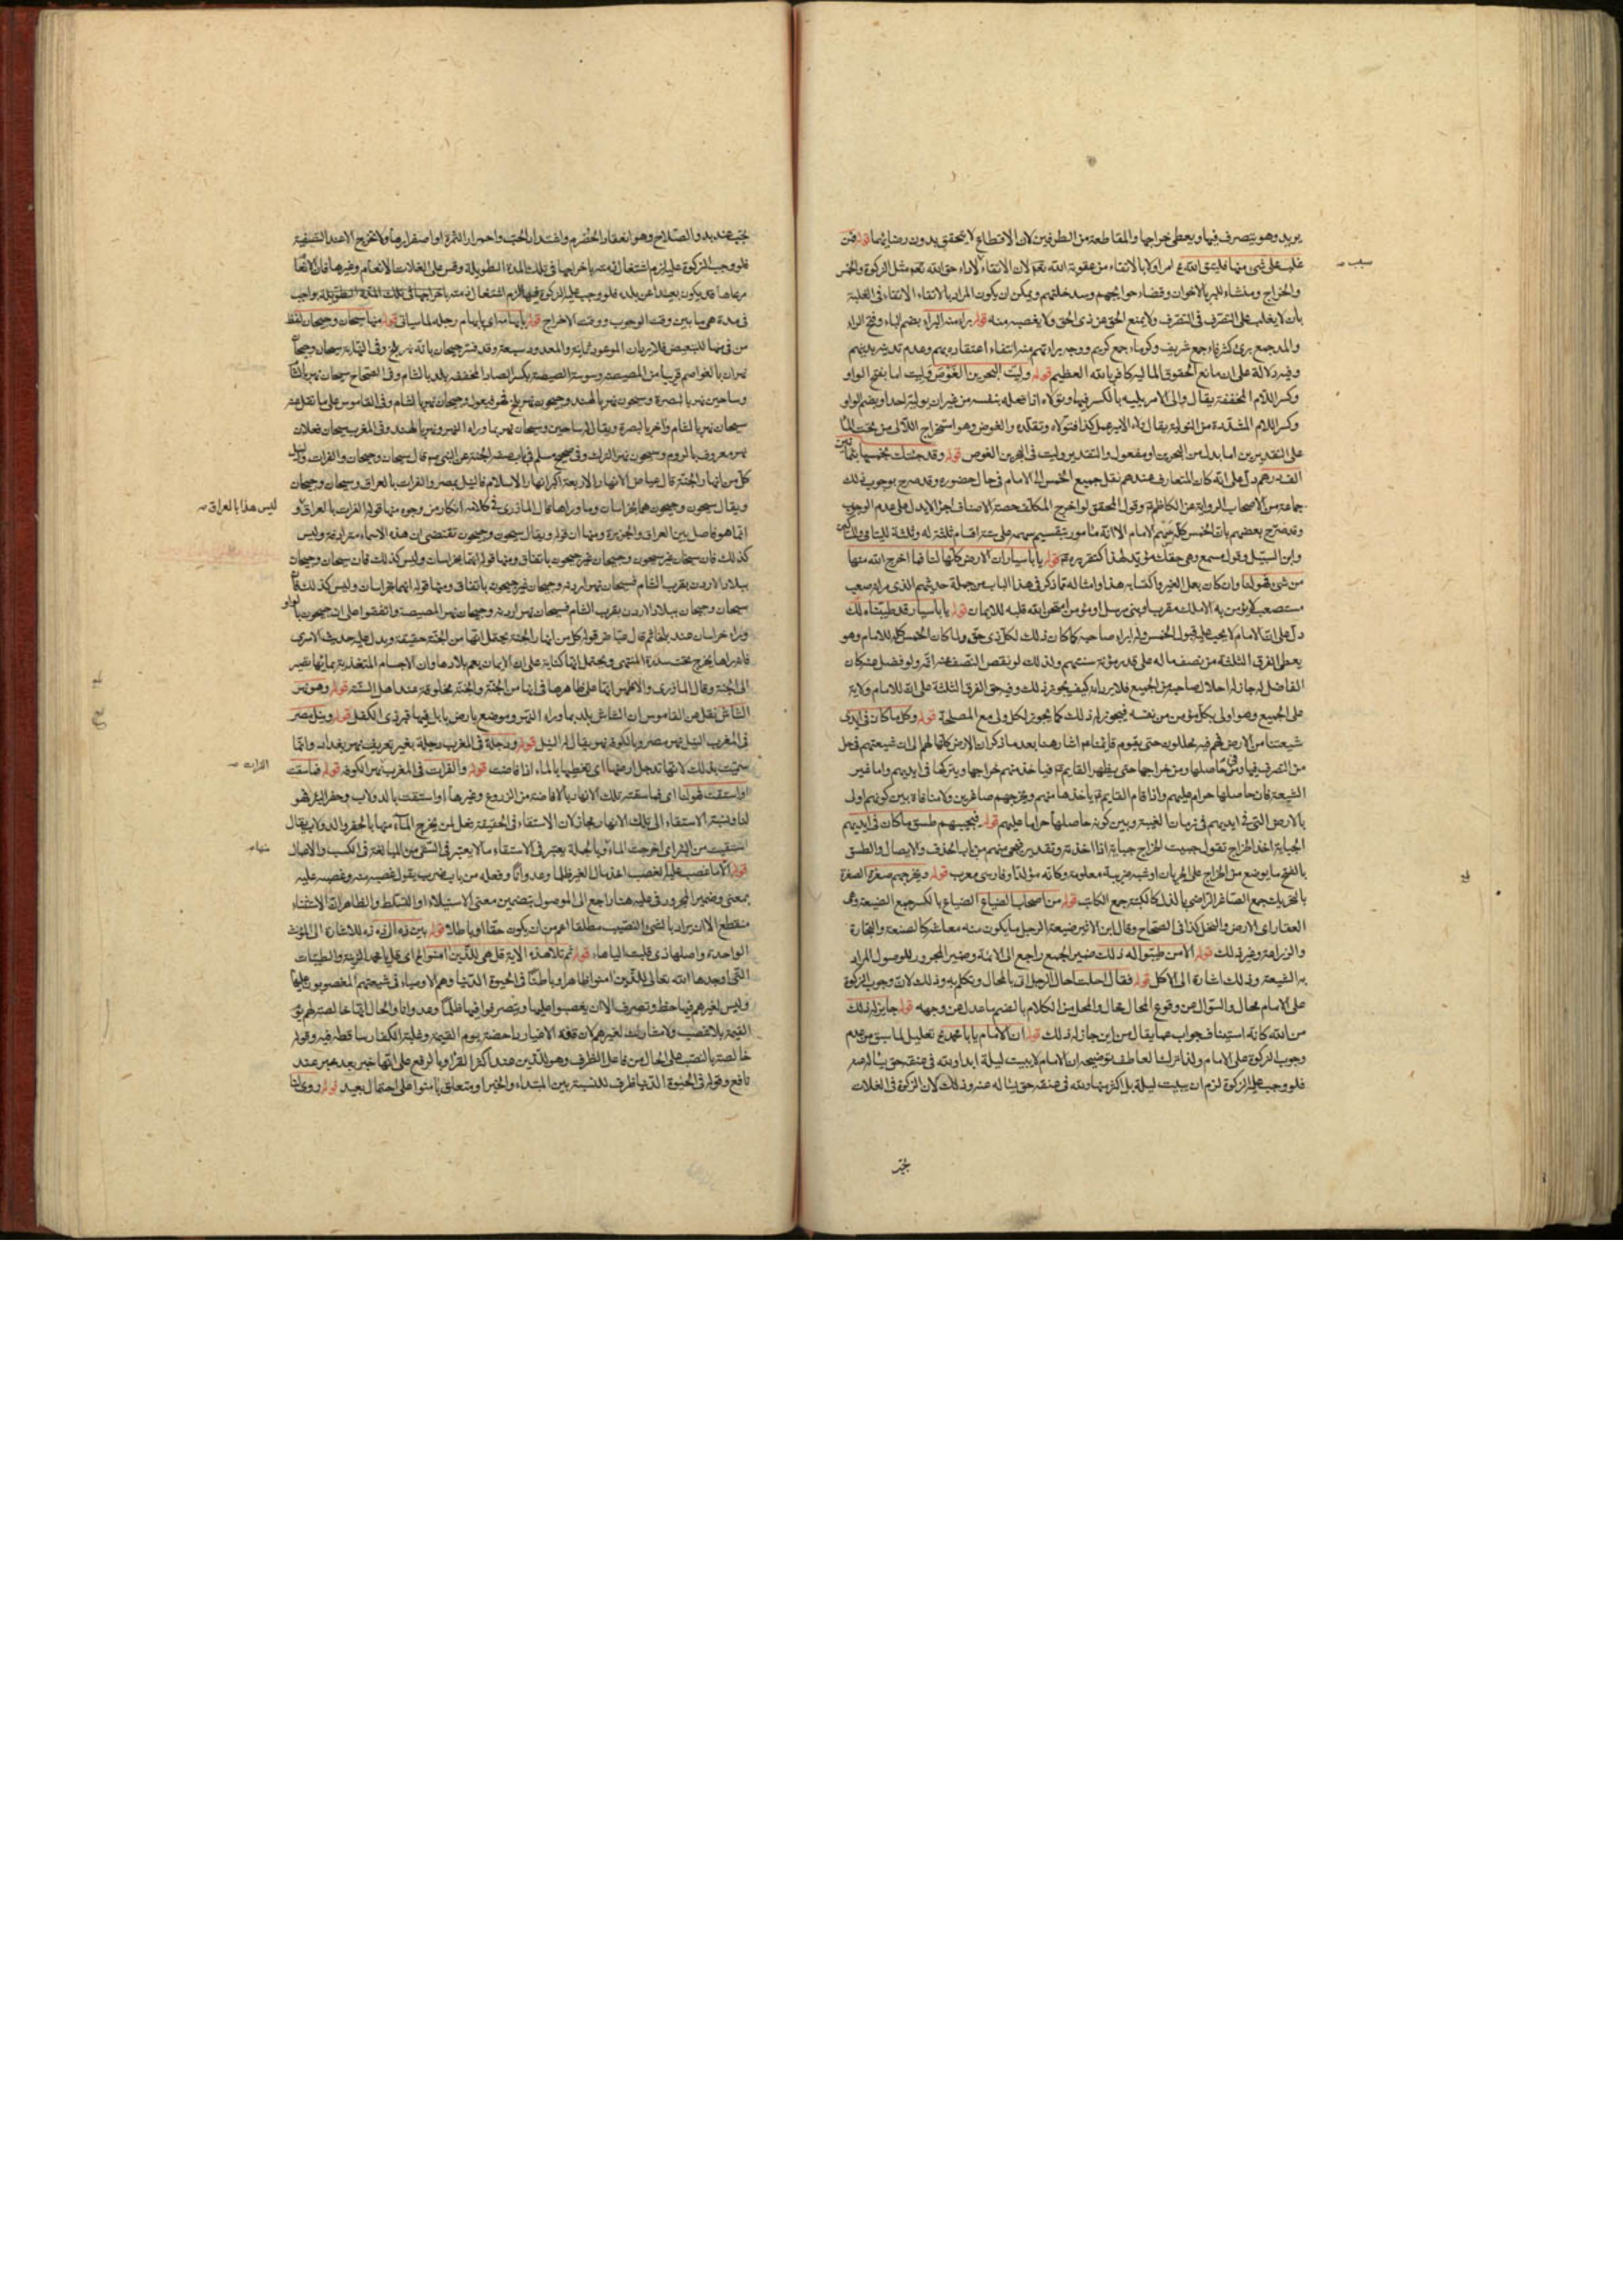 يريد وهو يتصرف فيها ويعطى خراجها والمقاطعة من الطرفين لان الاقطاع لا يتحقق بدون رضائهما قوله فمن
غلب على شئ منها فليتق الله امر اولا بالاتقاء من عقوبة الله تعم لان الاتقاء لاداء حق الله تعم مثل الزكوة والخمس
والخراج ومنشاء للبر بالاخوان وقضاء حوايجهم وسد خلتهم ويمكن ان يكون المراد بالاتقاء الاتقاء فى الغلبة
بان لا يغلب على التصرف فى التصرف ولا يمنع الحق عن ذى الحق ولا يغصبه منه قوله براء منه البراء بضم الباء وفتح الراء
والمد جمع برئ كشرفاء جمع شريف وكرماء جمع كريم ووجه براءتهم منه انتفاء اعتقاده بهم وعدم تدينه بدينهم
وفيه دلالة على ان مانع الحقوق المالية كافر بالله العظيم قوله وليت البحرين الغوص وليت اما بفتح الواو
وكسر اللام المخففة يقال والى الامر يليه بالكسر فيهما وتولاه اذا فعله بنفسه من غير ان يوليه احدا وبضم الواو
وكسر اللام المشددة من التولية يقال ولاه الامير عمل كذا فتولاه وتقلده والغوص وهو استخراج اللآلى من تحت الماء
على التقديرين اما بدل من البحرين او مفعول والتقدير وليت فى البحرين الغوص قوله وقد جئتك بخمسها بثمانين
الف درهم دل على انه كان المتعارف عندهم نقل جميع الخمس الى الامام فى حال حضوره وقد صرح بوجوب ذلك
جماعة من الاصحاب للرواية عن الكاظم وقول المحقق لو اخرج المكلف حصة الاصناف اجزأ لا يدل على عدم الوجوب
وقد صرح بعضهم بان الخمس كله للامام الا انه مامور بتقسيم سهمه على ستة اقسام ثلثة له وثلثة لليتامى والمساكين
وابن السبيل وقوله سمع وهى حقك مؤيد لهذا كتقريره قوله يابا سيار ان الارض كلها لنا فما اخرج الله منها
من شئ فهو لنا وان كان بعمل الغير واكتسابه هذا وامثاله مما ذكر فى هذا الباب من جملة حديثهم الذى مر انه صعب
مستصعب لا يؤمن به الا ملك مقرب او نبى مرسل او مؤمن امتحن الله قلبه للايمان قوله يابا سيار قد طيبناه لك
دل على ان الامام لا يجب عليه قبول الخمس وله ابراء صاحبه كما كان ذلك لكل ذى حق ولما كان الخمس كله للامام وهو
يعطى الفرق الثلثة من نصف ماله على قدر مؤنة سنتهم ولذلك لو نقص النصف عنه اتمه ولو فضل عنه كان
الفاضل له جاز له احلال صاحبه من الجميع فلا يرد انه كيف يجوز ذلك وفيه حق الفرق الثلثة على ان للامام ولاية
على الجميع وهو اولى بكل مؤمن من نفسه فيجوز له ذلك كما يجوز لكل ولى مع المصلحة قوله وكل ما كان فى ايدى
شيعتنا من الارض فهم فيه محللون حتى يقوم قائمنا اشار هنا بعد ما ذكر ان الارض كلها لهم الى ان شيعتهم فى حل
من التصرف فيها وفى حاصلها ومن خراجها حتى يظهر القايم فياخذ منهم خراجها ويتركها فى ايديهم واما غير
الشيعة فان حاصلها حرام عليهم واذا قام القايم ياخذها منهم ويخرجهم صاغرين ولا منافاة بين كونهم اولى
بالارض التى فى ايديهم فى زمان الغيبة وبين كون حاصلها حراما عليهم قوله فيجبيهم طسق ما كان فى ايديهم
الجباية اخذ الخراج تقول جبيت الخراج جباية اذا اخذته وتقدير فيجبى منهم من باب الحذف والايصال والطسق
بالفتح ما يوضع من الخراج على الجربان او شبه ضريبة معلومة وكانه مولد او فارسى معرب قوله ويخرجهم صغرة الصغرة
بالتحريك جمع الصاغر الراضى بالذل كالكتبة جمع الكاتب قوله من اصحاب الضياع الضياع بالكسر جمع الضيعة وهى
العقار اى الارض والنخل كذا فى الصحاح وقال ابن الاثير ضيعة الرجل ما يكون منه معاشه كالصنعة والتجارة
والزراعة وغير ذلك قوله الا من طيبوا له ذلك ضمير الجمع راجع الى الائمة وضمير المجرور للموصول المراد
به الشيعة وذلك اشارة الى الاكل قوله فقال احلت احال الرجل اتى بالمحال وتكلم به وذلك لان وجوب الزكوة
على الامام محال والسؤال عن وقوع المحال محال والمحل من الكلام بالضم ما عدل عن وجهه قوله جايز له ذلك
من الله كانه استيناف جواب عما يقال من اين جاز له ذلك قوله ان الامام يابا محمد تعليل لما سبق من عدم
وجوب الزكوة على الامام ولذا ترك العاطف توضيحه ان الامام لا يبيت ليلة ابدا ولله فى عنقه حق يسأله عنه
فلو وجب عليه الزكوة لزم ان يبيت ليلة بل اكثر منها ولله فى عنقه حق يسأله عنه وذلك لان الزكوة فى الغلات
سبب
تجب
تجب عند بدو الصلاح وهو انعقاد الحصرم واشتداد الحب واحمرار الثمرة او اصفرارها ولا تخرج الا عند التصفية
فلو وجب الزكوة عليه لزم اشتغال ذمته باخراجها فى تلك المدة الطويلة وقس على الغلات الانعام وغيرها فان الانعام
مرعاها قد يكون بعيدا عن بلده فلو وجب عليه الزكوة فيها لزم اشتغال ذمته باخراجها فى تلك المدة الطويلة واجب
فى مدة هى ما بين وقت الوجوب ووقت الاخراج قوله بابهامه اى بابهام رجله لما سياتى قوله منها سيحان وجيحان لفظ
من فى منها للتبعيض فلا يرد ان الموعود ثمانية والمعدود سبعة وقد فسر جيحان بانه نهر بلخ وفى النهاية سيحان وجيحان
نهران بالعواصم قريبا من المصيصة وسوسة المصيصة بكسر الصاد المخففة بلد بالشام وفى الصحاح سيحان نهر بالشام
وساحين نهر بالبصرة وسيحون نهر بالهند وجيحون نهر بلخ فهو فيعول وجيحان نهر بالشام وفى القاموس على ما نقل عنه
سيحان نهر بالشام وآخر بالبصرة ويقال له ساحين وسيحان نهر بما وراء النهر ونهر بالهند وفى المغرب سيحان فعلان
نهر معروف بالروم وسيحون نهر الترك وفى صحيح مسلم فى باب صفة الجنة عن النبى ص قال سيحان وجيحان والفرات والنيل
كل من انهار الجنة قال عياض الانهار الاربعة اكبر انهار الاسلام فالنيل بمصر والفرات بالعراق وسيحان وجيحان
ويقال سيحون وجيحون هما بخراسان وما وراها قال المازرى فى كلامه انكار من وجوه منها قوله الفرات بالعراق و
انما هو فاصل بين العراق والجزيرة ومنها ان قوله ويقال سيحون وجيحون تقتضى ان هذه الاسماء مترادفة وليس
كذلك فان سيحان غير سيحون وجيحان غير جيحون باتفاق ومنها قوله انهما بخراسان وليس كذلك فان سيحان وجيحان
ببلاد الارمن بقرب الشام فسيحان نهر اردنه وجيحان غير جيحون باتفاق ومنها قوله انهما بخراسان وليس كذلك فان
سيحان وجيحان ببلاد الارمن بقرب الشام فسيحان نهر اردنه وجيحان نهر المصيصة واتفقوا على ان جيحون بالواو
وراء خراسان عند بلخ ثم قال عياض قوله كل من انهار الجنة يحتمل انها من الجنة حقيقة ويدل عليه حديث الاسرى
فانه راها يخرج تحت سدرة المنتهى ويحتمل انها كناية على ان الايمان يعم بلادها وان الاجسام المتغذية بمائها تصير
الى الجنة وقال المازرى والاظهر انها على ظاهرها فى انها من الجنة والجنة مخلوقة عند اهل السنة قوله وهو نهر
الشاش نقل عن القاموس ان الشاش بلد بما وراء النهر وموضع بارض بابل فيها قبر ذى الكفل قوله ونيل مصر
فى المغرب النيل نهر مصر وبالكوفة نهر يقال له النيل قوله ودجلة فى المغرب دجلة بغير تعريف نهر بغداد وانما
سميت بذلك لانها تدجل ارضها اى تغطيها بالماء اذا فاضت قوله والفرات فى المغرب نهر الكوفة قوله فما سقت
او استقت فهو لنا اى فما سقته تلك الانهار بالافاضة من الزروع وغيرها او استقت بالدولاب وحفر النهر فهو
لنا ونسبة الاستقاء الى تلك الانهار مجاز لان الاستقاء فى الحقيقة فعل لمن يخرج الماء منها بالحفر والدولاب يقال
استقيت من البئر اى اخرجت الماء وبالجملة يعتبر فى الاستقاء ما لا يعتبر فى السقى من المبالغة فى الكسب والاعمال
قوله الا ما غصب عليه الغصب اخذ مال الغير ظلما وعدوانا وفعله من باب ضرب يقول غصبه منه وغصبه عليه
بمعنى وضمير المجرور فى عليه هنا راجع الى الموصول بتضمين معنى الاستيلاء او التسلط والظاهر ان الاستثناء
منقطع الا ان يراد بالشئ والنصيب مطلقا اعم من ان يكون حقا او باطلا قوله بين ذه الى ذه ذه للاشارة الى المؤنث
الواحدة واصلها ذى قلبت الياء هاء قوله ثم تلا هذه الاية قل هى للذين امنوا الخ اى قل يا محمد الزينة والطيبات
التى اوجدها الله تعالى للذين امنوا ظاهرا وباطنا فى الحيوة الدنيا وهم الاوصياء فى شيعتهم المغصوبون عليها
وليس لغيرهم فيها حظ وتصرف الا ان يغصبوا عليها ويتصرفوا فيها ظلما وعدوانا والحال انها خالصة لهم يوم
القيمة بلا غصب ولا مشاركة لغيرهم لان قوة الاغيار داحضة يوم القيمة وغلبة الكفار ساقطة فيه وقوله
خالصة بالنصب على الحال من فاعل الظرف وهو للذين عند اكثر القراء وبالرفع على انها خبر بعد خبر عند
نافع وقوله فى الحيوة الدنيا ظرف للنسبة بين المبتداء والخبر او متعلق بامنوا على احتمال بعيد قوله روى لنا
ليس هذا بالعراق
الفرات
منها